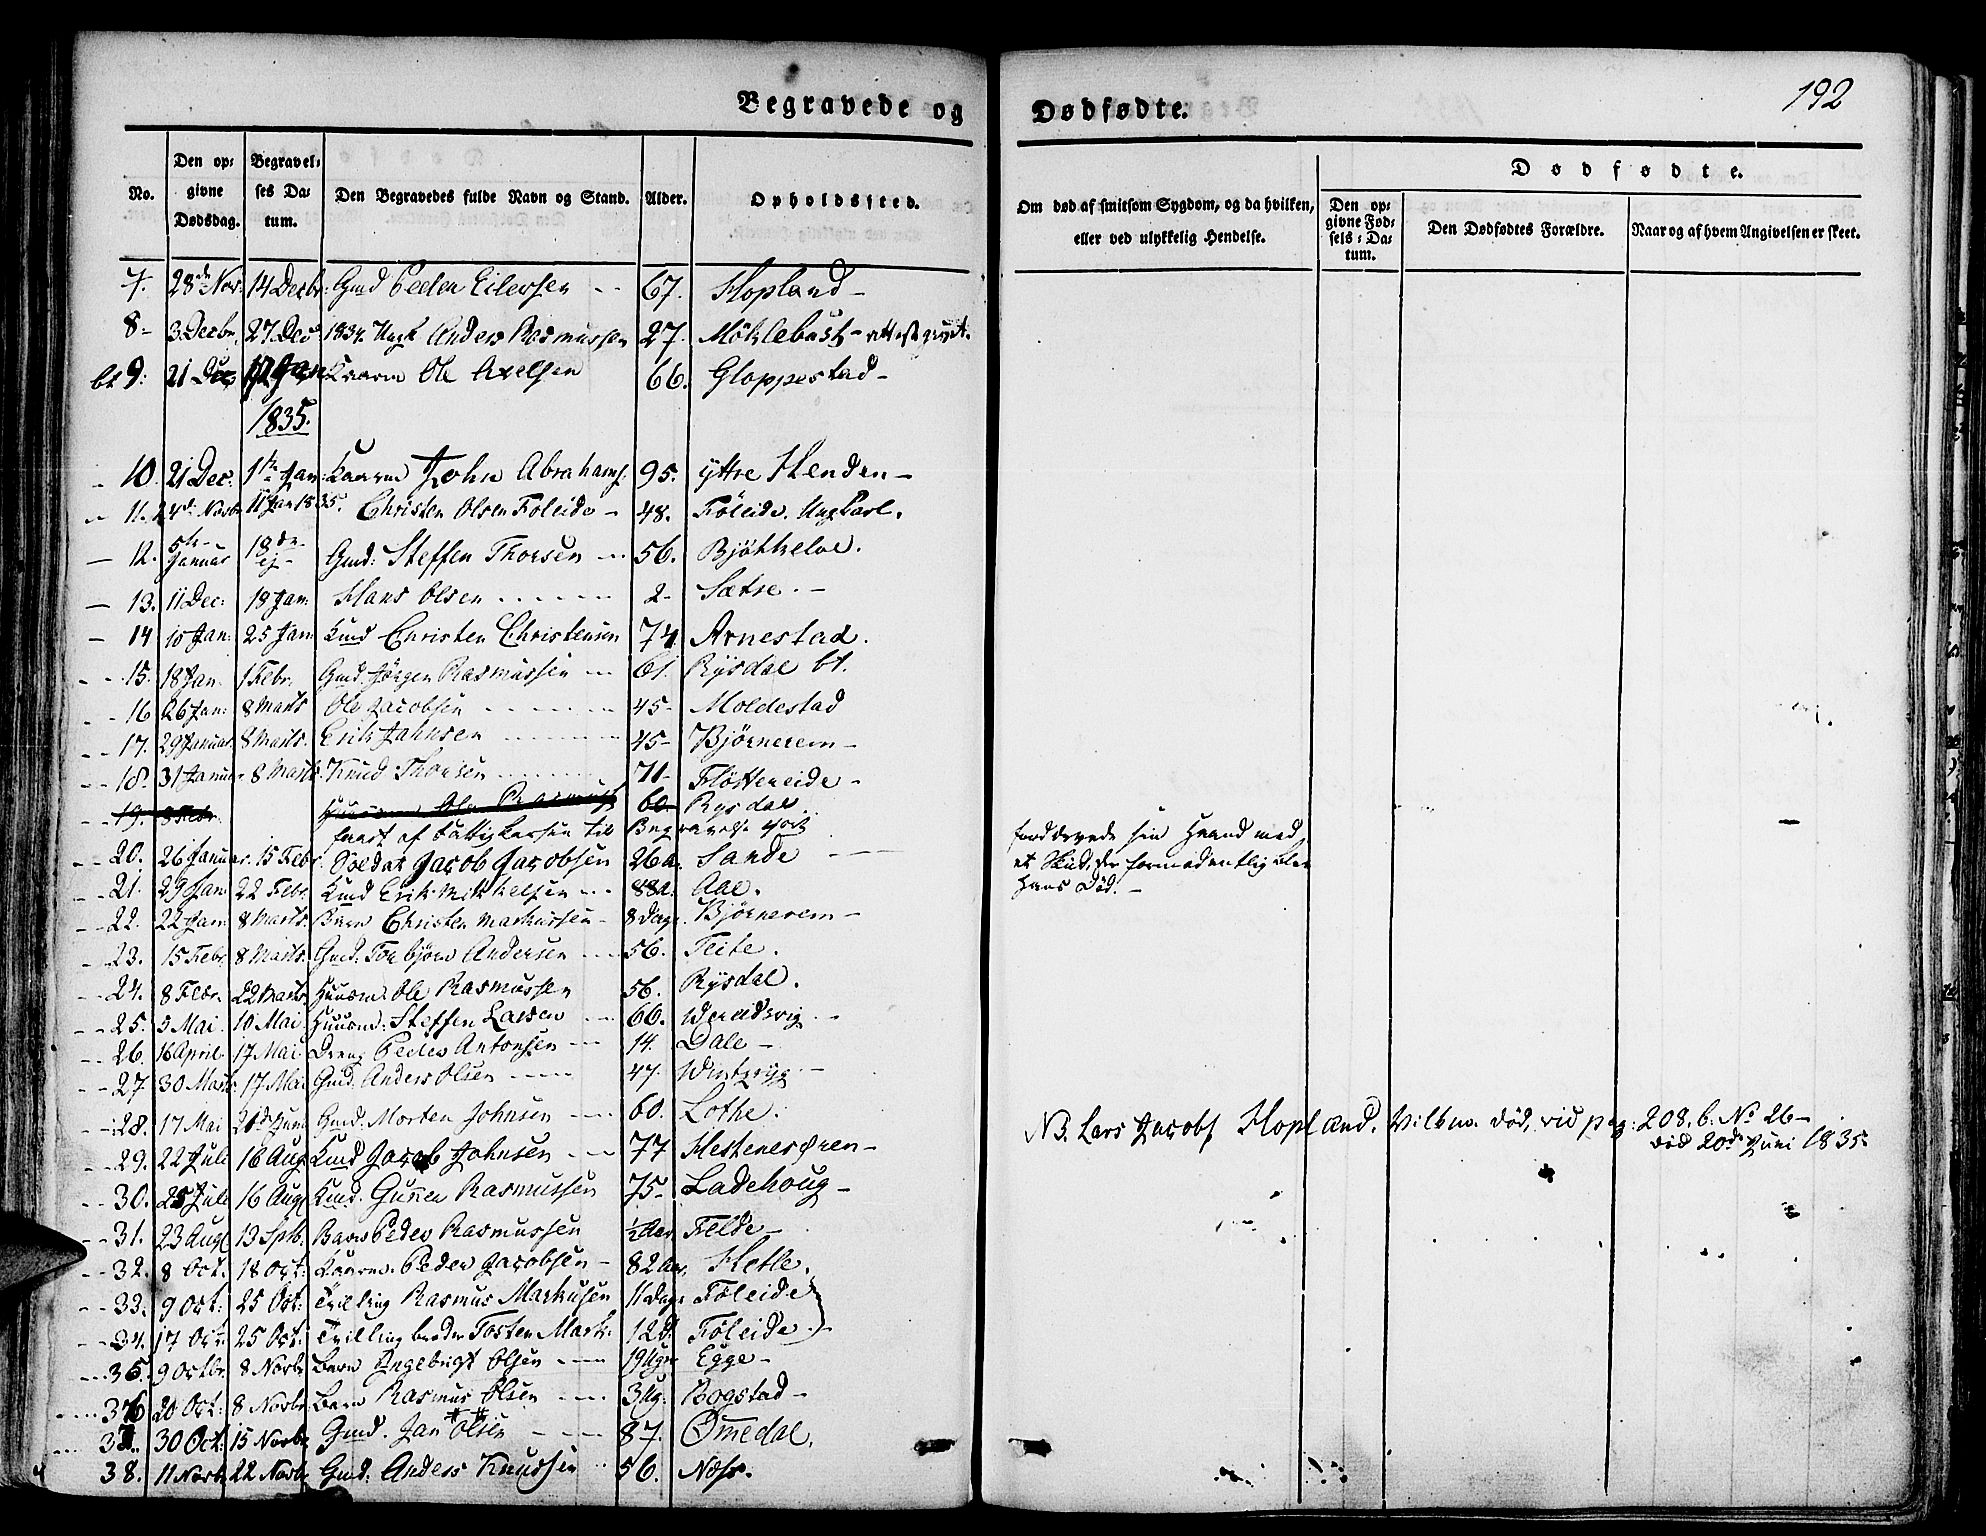 192
Begravede og Dødfødte.
No. Den opgivne Dødsdag. Begravelses Datum. Den Begravedes fulde Navn og Stand. Alder. Opholdssted. Om død af smitsom Sygdom, og da hvilken, eller ved ulykkelig Hendelse. Dødfødte. Den opgivne Fødsels-Datum. Den Dødfødtes Forældre. Naar og af hvem Angivelsen er skeet.
7. 28de Nov: 14 Decbr: Gmd Peder Eilersen 67. Hopland
8 3 Decbr. 27 Dec 1834. Ungk Anders Rasmussen 27. Möklebust
9. 21 Dec Kaarm Ole Axelsen 66. Gloppestad
1835.
10. 21 Dec. 1ste Jan: Kaarm John Abrahams. 95. yttre Henden
11. 24de Novbr 11 Jan 1835. Christen Olsen Föleide 48. Föleide. Ungkarl.
12. 5te Januar 18de ej Gmd: Steffen Thorsen 56. Bjöthelve.
13. 11 Dec: 18 Jan: Hans Olsen 2 Sætre.
14 10 Jan: 25 Jan: Kmd Christen Christensen 74. Arnestad.
15. 18 Jan. 1 Febr. Gmd. Jörgen Rasmussen 61. Rysdal
16 26 Jan: 8 Marts Ole Jacobsen 45 Moldestad
17. 29 Januar. 8 Marts. Erik Johnsen 45 Björnerem
18. 31 Januar 8 Marts. Knud Thorsen 71 Flöttereide
19. 8 Febr. Huusm Ole Rasmus 60. Rysdal
20. 26 Januar. 15 Febr. Soldat Jacob Jacobsen 26 a. Sande forddervede sin Haand med
et Skud, der formodentlig blev
hans Död.
21. 29 Jan 22 Febr. Kmd Erik Mikkelsen 88 a. Aae.
22. 22 Jan 8 Marts Barn Christen Markussen 8 dage. Björnerem
23. 15 Febr. 8 Marts. Gmd: Torbjörn Andersen 56. Teite.
24. 8 Febr. 22 Marts. Huusm: Ole Rasmussen 56. Rysdal.
25. 5 Mai 10 Mai Huusmd: Steffen Larsen 66. Wereidsvig
26. 16 April 17 Mai Dreng Peder Antonsen 14. Dale
27. 30 Marts. 17 Mai Gmd: Anders Olsen 47.
28. 17 Mai Juni Gmd. Morten Johnsen 60. Lothe. NB. Lars Jacobs Hopland. död, vid pag: 208. b. No 26
20de Juni 1835.
29. 22 Juli 16 Aug Kmd Jacob Johnsen 77 Hestenesören
30. 25 Juli 16 Aug Kmd. Gunner Rasmussen 75 Ladehoug
31. 23 Aug 13 Sptb. Barn Peder Rasmussen ½ Aar. Felde
32. 8 Oct. 18 Oct: Kaarm. Peder Jacobsen 82 Aar. Hetle.
33. 9 Oct: 25 Oct: Tvilling Rasmus Markusen 11 Dage Föleide
34. 17 Oct: 25 Oct: Tvillingbroder Tosten Mark. 12 d. Föleide.
35. 9 Octbr. 8 Novbr Barn Ingebrigt Olsen 19 Uger Egge
36 20 Oct: 8 Novbr Barn Rasmus Olsen 3 Ug. Bogstad
37. 30 Oct: 15 Novbr Gmd. Jan Olsen 87. Omedal.
38. 11 Novb. 22 Novbr Gmd: Anders Knudsen 56. Næss.